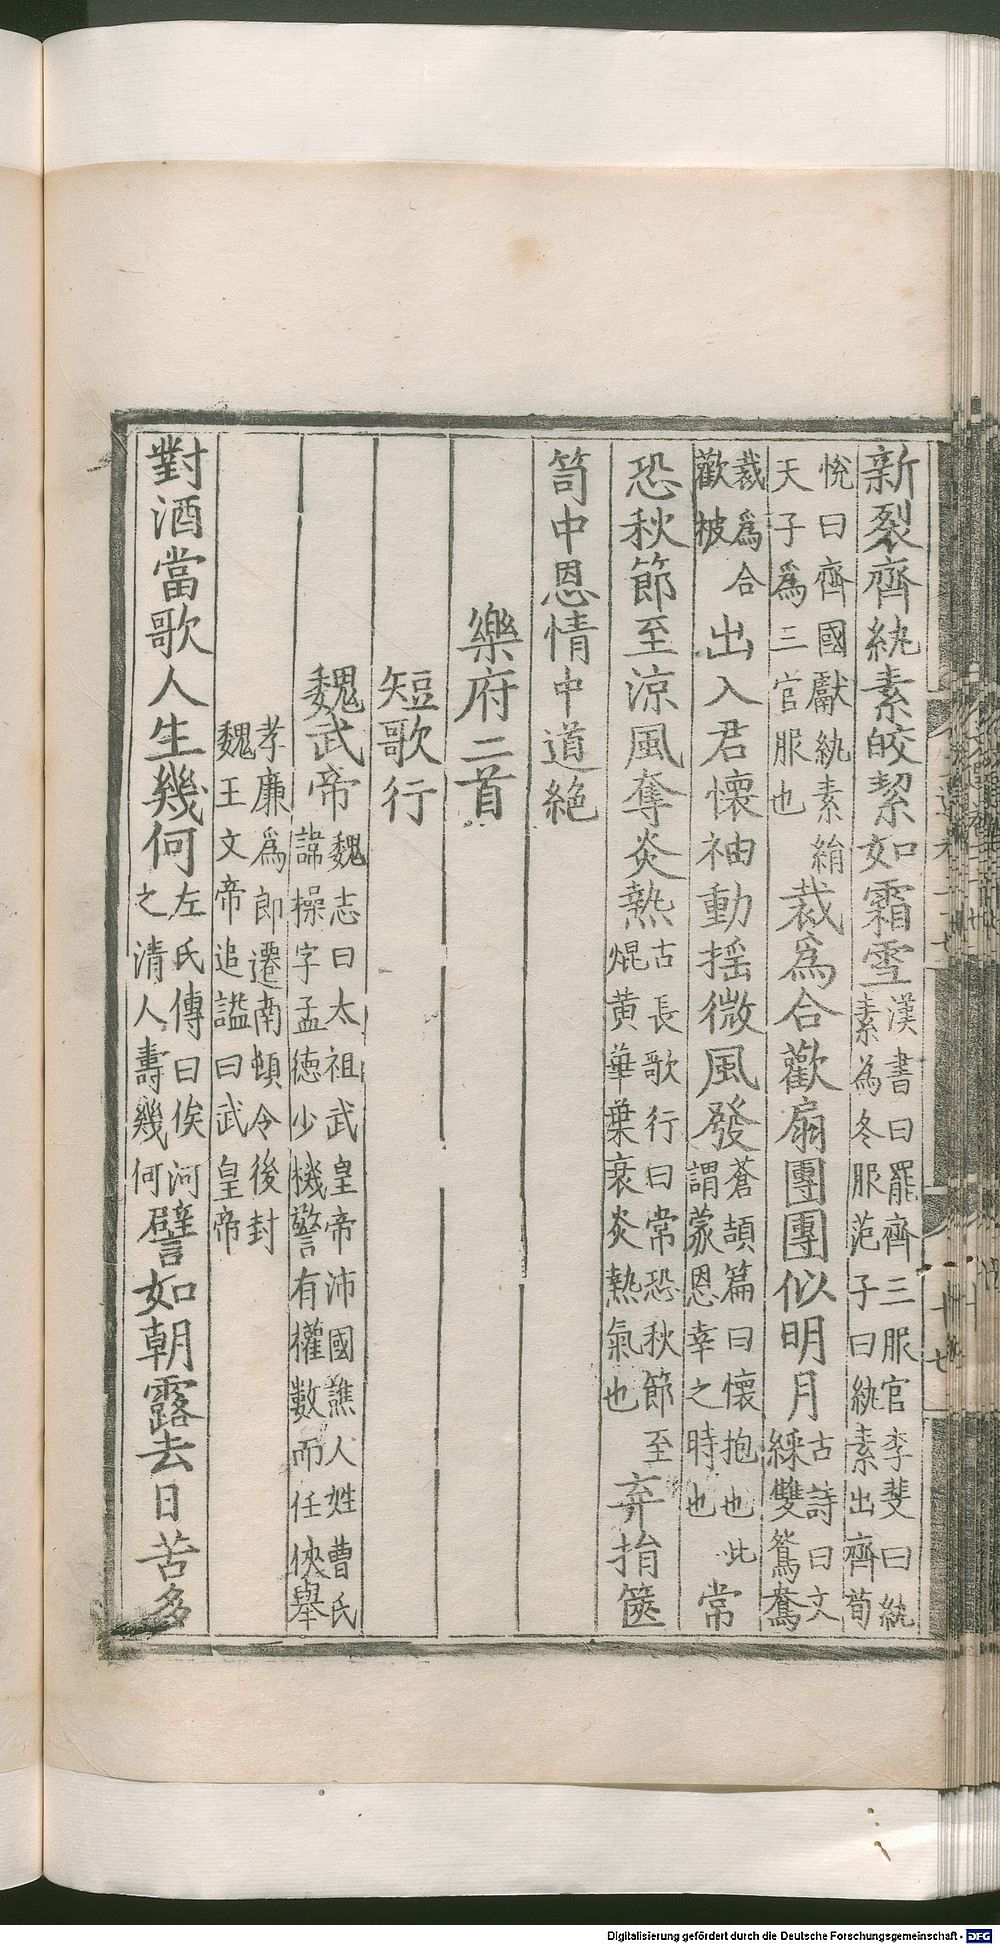 新裂齊紈素皎絜如霜雪漢書曰罷齊三服官李斐曰紈素為冬服范子曰紈素出齊荀
悅曰齊國獻紈素絹天子爲三官服也裁爲合歡扇團團似明月古詩曰文綵雙鴛鴦
裁爲合歡被出入君懷袖動揺微風發蒼頡篇曰懷抱也此謂蒙恩幸之時也常
恐秋節至涼風奪炎熱古長歌行曰常恐秋節至焜黄華葉衰炎熱氣也弃捐篋
笥中恩情中道絶
樂府二首
短歌行
魏武帝魏志曰太祖武皇帝沛國譙人姓曹氏諱操字孟德少機警有權數而任俠舉
孝廉爲郎遷南頓令後封魏王文帝追謚曰武皇帝
對酒當歌人生幾何左氏傳曰俟河之清人壽幾何譬如朝露去日苦多
Digitalisierung gefördert durch die Deutsche Forschungsgemeinschaft - DFG